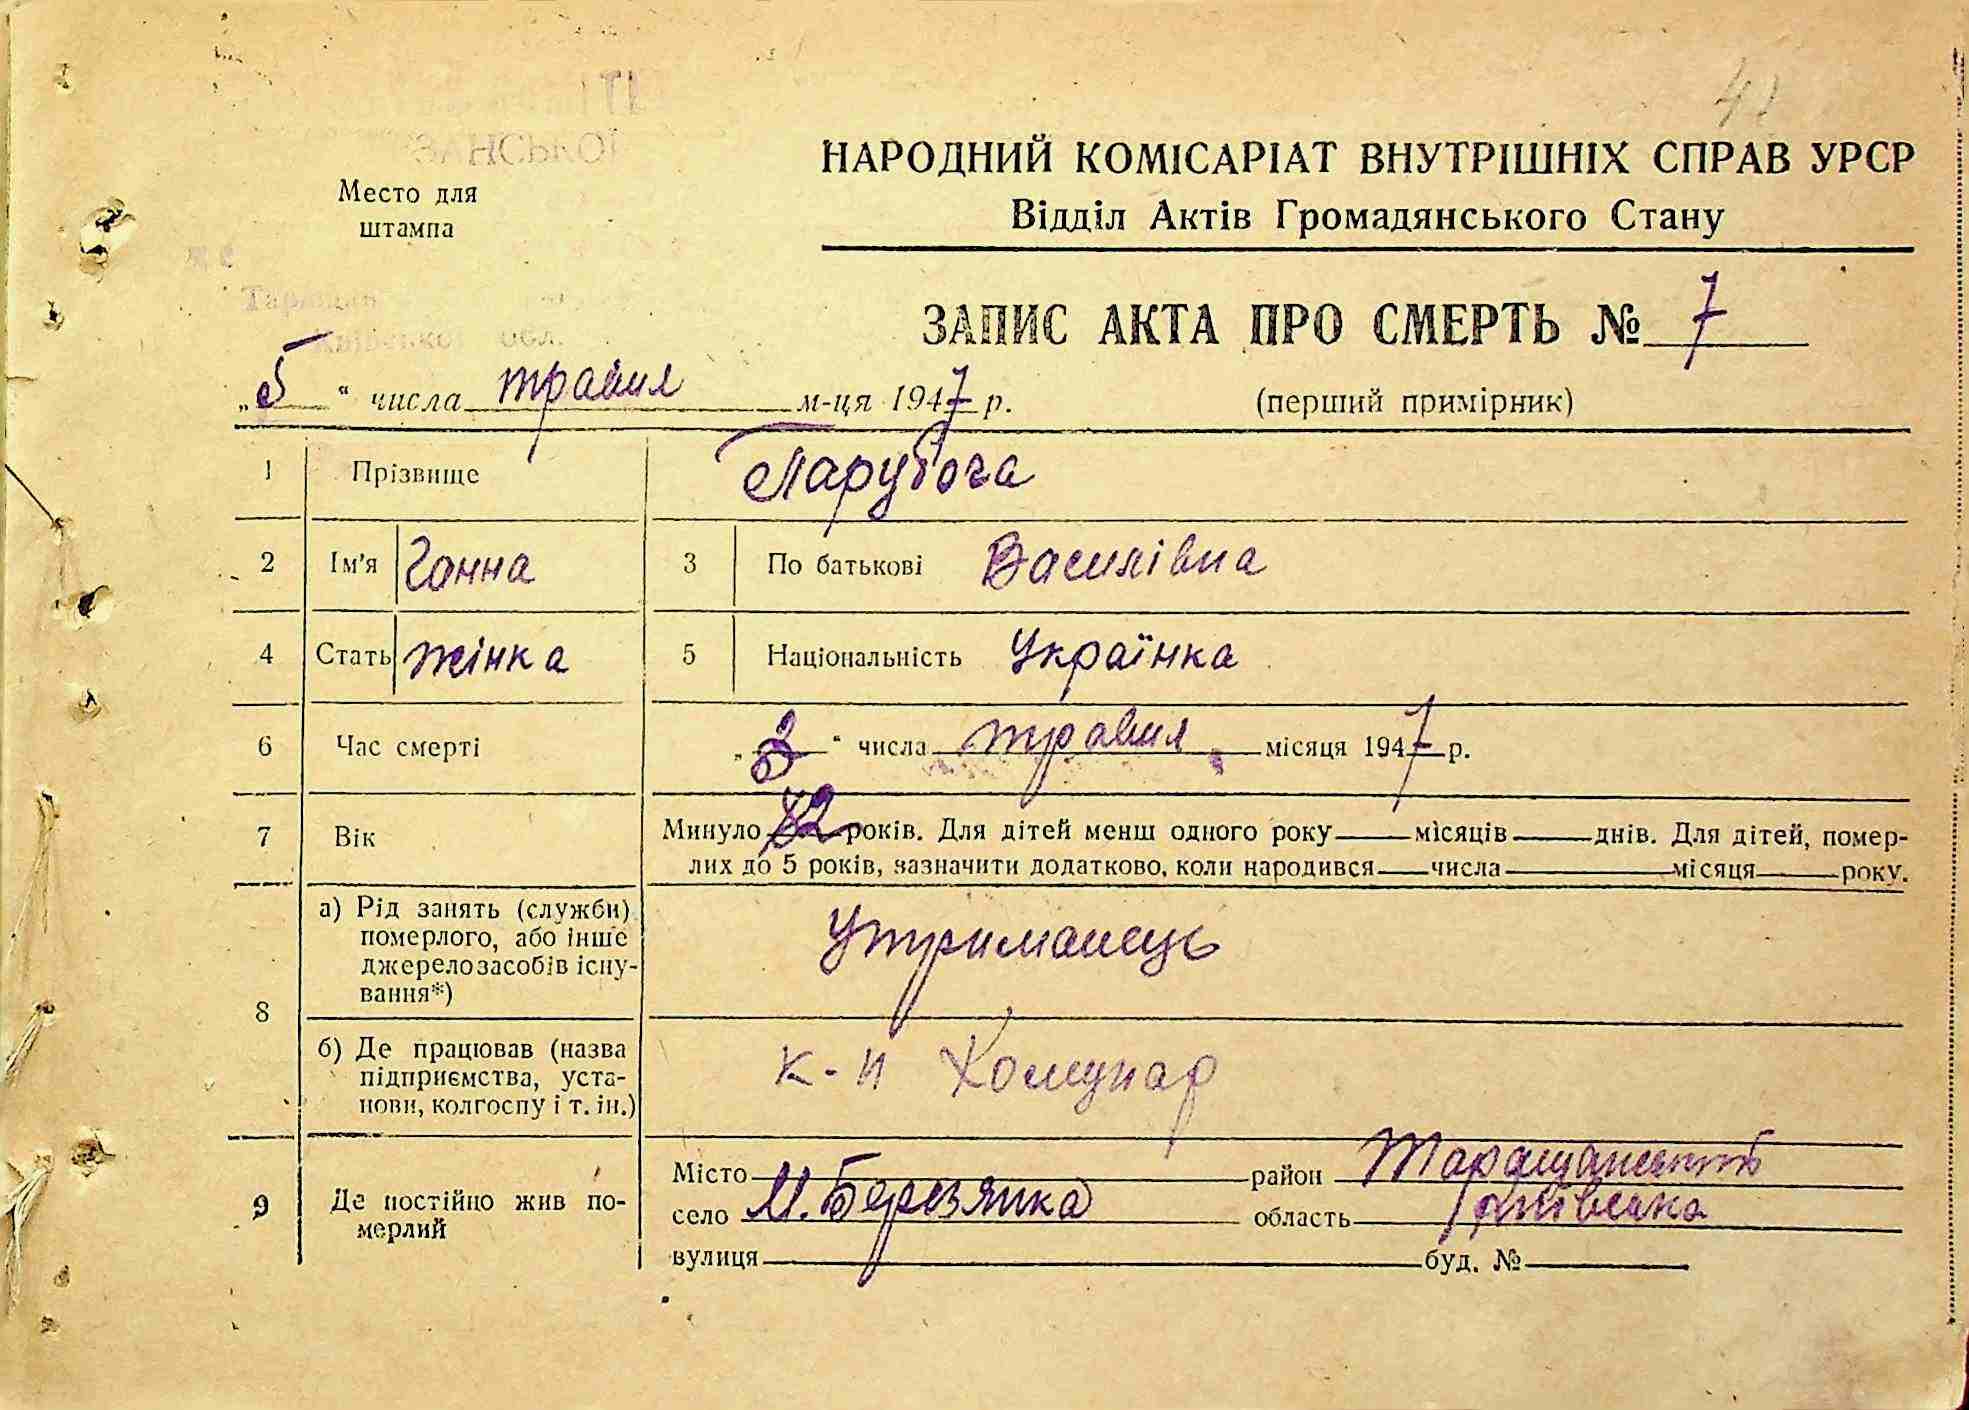 41
Место для
штампа
НАРОДНИЙ КОМІСАРІАТ ВНУТРІШНІХ СПРАВ УРСР
Відділ Актів Громадянського Стану
обл.
ЗАПИС АКТА ПРО СМЕРТЬ № 7
„5“ числа травня м-ця 1947 р. (перший примірник)
1 Прізвище Парубоча
2 Ім'я Ганна 3 По батькові Василівна
4 Стать жінка 5 Національність Українка
6 Час смерті „ “ числа травня місяця 1947 р.
7 Вік Минуло 82 років. Для дітей менш одного року місяців днів. Для дітей, помер-
лих до 5 років, зазначити додатково, коли народився числа місяця року.
8 а) Рід занять (служби)
померлого, або інше
джерело засобів існу-
вання*)
Утриманець
б) Де працював (назва
підприємства, уста-
нови, колгоспу і т. ін.)
к-п Комунар
9 Де постійно жив по-
мерлий
Місто район Таращанський
село М. Березянка область Київська
вулиця буд. №